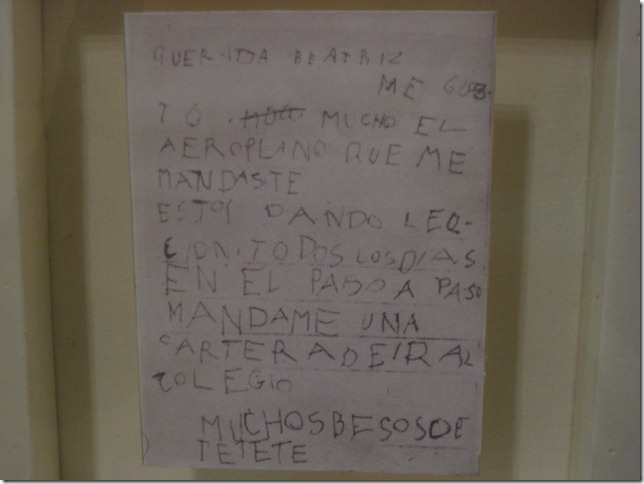 QUERIDA BEATRIZ
ME GUS-
TO MUCHO EL
AEROPLANO QUE ME
MANDASTE
ESTOY DANDO LEC-
CION TODOS LOS DIAS
EN EL PASO A PASO
MANDAME UNA
CARTERA DE IR AL
COLEGIO
MUCHOS BESOS DE
TETETE